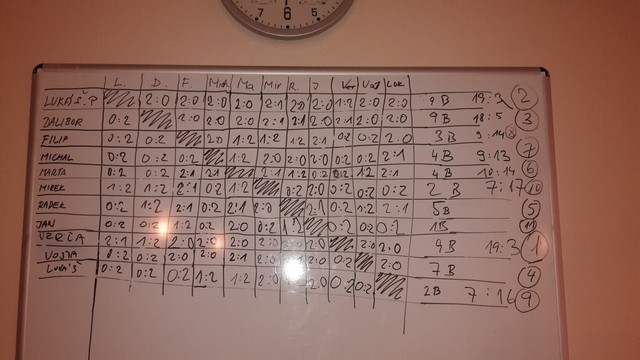 7 6 5
L. D. F. Mich Ma Mir R. J Ver Voj Luk
LUKÁŠ.P 2:0 2:0 2:0 2:0 2:1 2:0 2:0 1:2 2:0 2:0 9B 19:3 2
DALIBOR 0:2 2:0 2:0 2:0 2:1 2:1 2:0 2:1 2:0 2:0 9B 18:5 3
FILIP 0:2 0:2 2:0 1:2 1:2 1:2 2:1 0:2 0:2 2:0 3B 9:14 8
MICHAL 0:2 0:2 0:2 1:2 2:0 2:0 2:0 0:2 0:2 2:1 4B 9:13 7
MARTA 0:2 0:2 2:1 2:1 2:1 1:2 0:2 0:2 1:2 2:1 4B 10:14 6
MIREK 1:2 1:2 2:1 0:2 1:2 0:2 2:0 0:2 0:2 0:2 2B 7:17 10
RADEK 0:2 1:2 2:1 0:2 2:1 2:0 2:1 0:2 0:2 2:1 5B 5
JAN 0:2 0:2 1:2 0:2 2:0 0:2 0:2 0:2 1B 11
VERČA 2:1 1:2 2:0 2:0 2:0 2:0 2:0 2:0 2:0 9B 19:3 1
VOJTA 0:2 0:2 2:0 2:0 2:1 2:0 2:0 0:2 2:0 7B 4
LUKÁŠ 0:2 0:2 0:2 1:2 1:2 2:0 2:0 0:2 0:2 2B 7:16 9